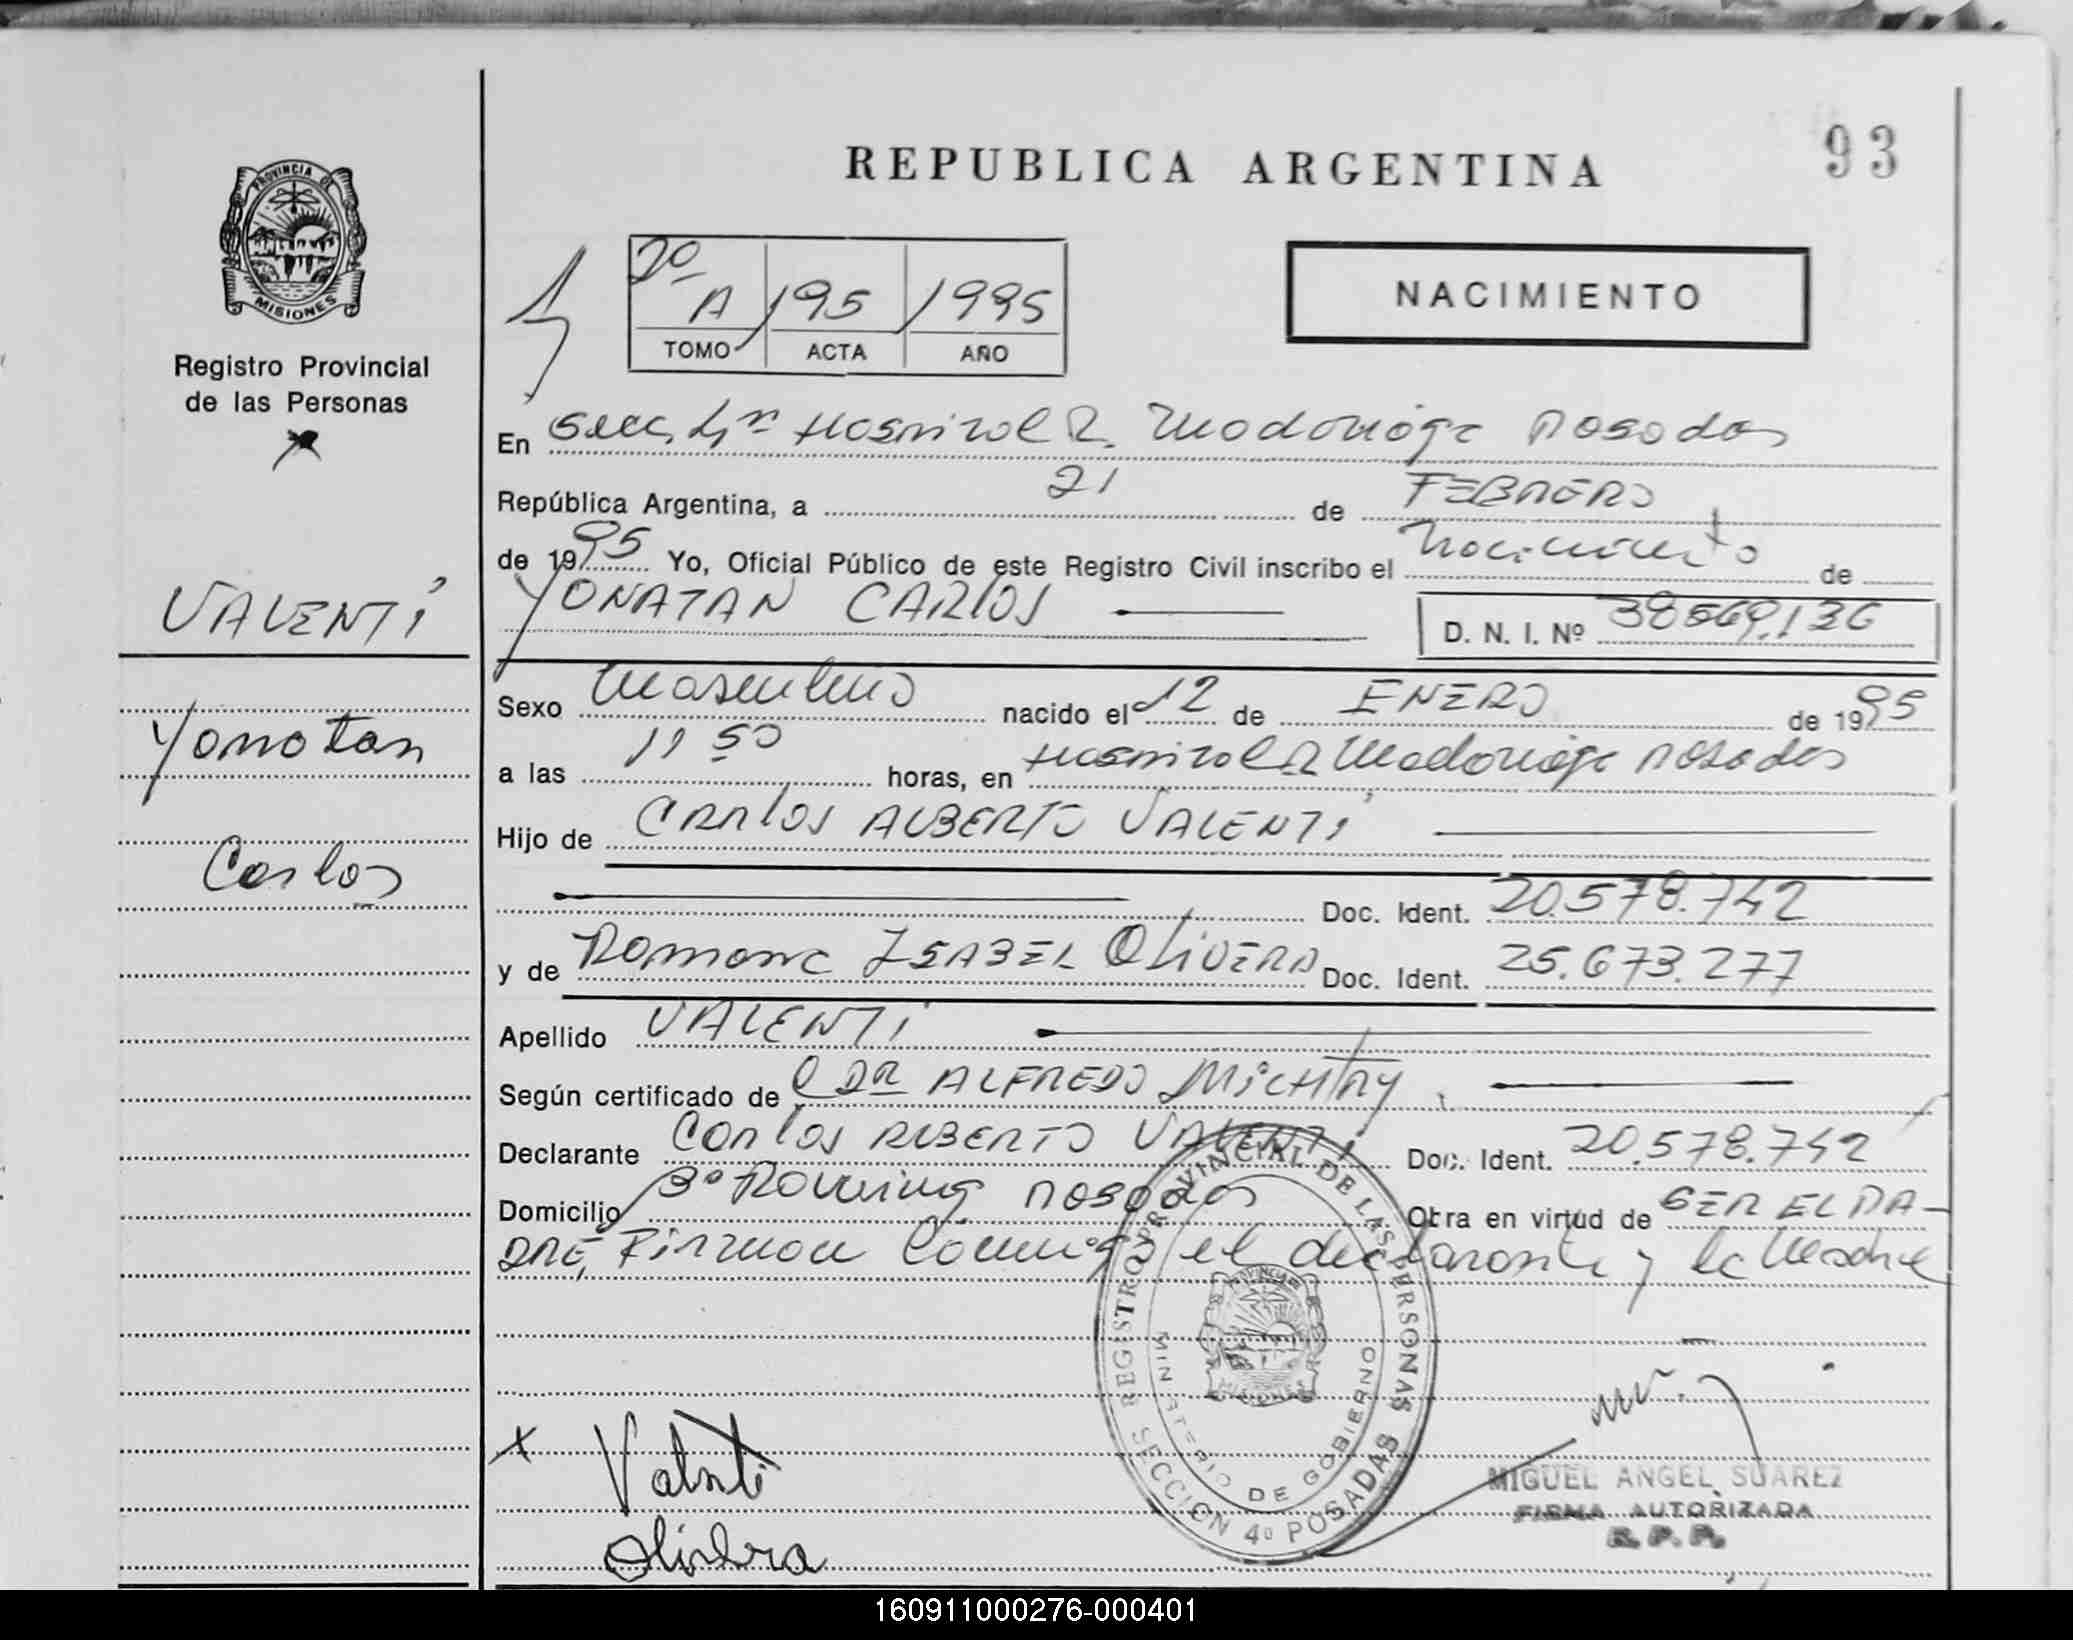 93
REPUBLICA ARGENTINA
PROVINCIA DE
MISIONES
Registro Provincial
de las Personas
2º A 195 1995
TOMO ACTA AÑO
NACIMIENTO
En Secc. 4ª Hospital R. Madariaga Posadas
República Argentina, a 21 de FEBRERO
de 1995 Yo, Oficial Público de este Registro Civil inscribo el Nacimiento de
YONATAN CARLOS
D. N. I. Nº 38.569.136
VALENTI
Yonatan
Carlos
Sexo Masculino nacido el 12 de ENERO de 1995
a las 11 50 horas, en Hospital R Madariaga Posadas
Hijo de CARLOS ALBERTO VALENTI
Doc. Ident. 20.578.742
y de Ramona ISABEL OLIVERA Doc. Ident. 25.673.277
Apellido VALENTI
Según certificado de DR ALFREDO
Declarante CARLOS ALBERTO VALENTI Doc. Ident. 20.578.742
Domicilio Posadas Obra en virtud de SER EL PA-
DRE, Firman Conmigo el declarante y la Madre
REGISTRO PROVINCIAL DE LAS PERSONAS
MINISTERIO DE GOBIERNO
SECCION 4º POSADAS
PROVINCIA DE
MISIONES
X Valenti
Olivera
MIGUEL ANGEL SUAREZ
FIRMA AUTORIZADA
R. P. P.
160911000276-000401